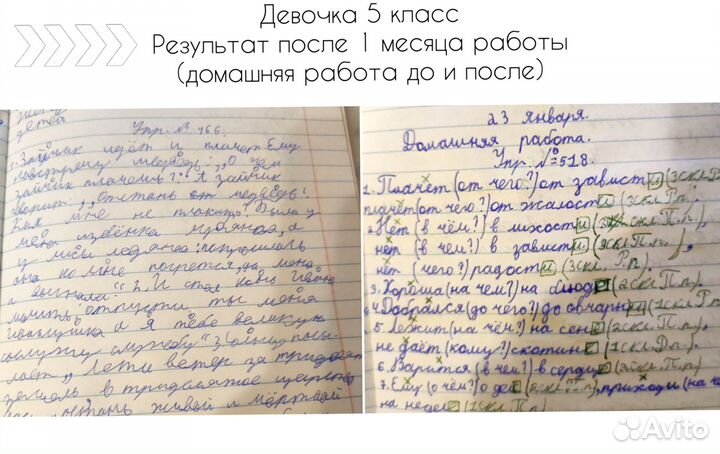 Девочка 5 класс
Результат после 1 месяца работы
(домашняя работа до и после)
детва
Упр. № 166.
1. Зайчик идёт и плачет. Ему
навстречу медведь: ,,О чем
зайчик плачешь?" А зайчик
,,отстань от медведь!
Как мне не плакать? Была у
меня избёнка лубяная, а
у лисы ледяная; попросилась
она ко мне погрется, да меня
и выгнала". 2. И стал конь Ивана
молить: ,,отпусти ты меня
Иванушка а я тебе великую
службу" 3. посы
лает ,,Лети ветер за тридевять
земель в тридесятое царство
живой и мёртвой
23 января.
Домашняя работа.
Упр. №518.
1. Плачет (от чего?) от завист и (3 скл. Р.п.)
плачет (от чего?) от жалост и (3 скл. Р.п.)
2. Нет (в чём?) в милост и (3 скл. П.п.),
нет (в чем?) в завист и (3 скл. П.п.),
нет (чего?) радост и (3 скл. Р.п.)
3. Хороша (на чем?) на блюд е (2 скл. П.п.)
4. Добрался (до чего?) до овчарн и (1 скл. Р.п.)
5. Лежит (на чём?) на сен е (2 скл. П.п.),
не даёт (кому?) скотин е (1 скл. Д.п.)
6. Варится (в чём?) в сердц е (2 скл. П.п.)
7. Ему (о чём?) о дел е (2 скл. П.п.), приходи (на
на недел е (1 скл. П.п.)
Avito